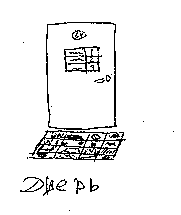 Дверь